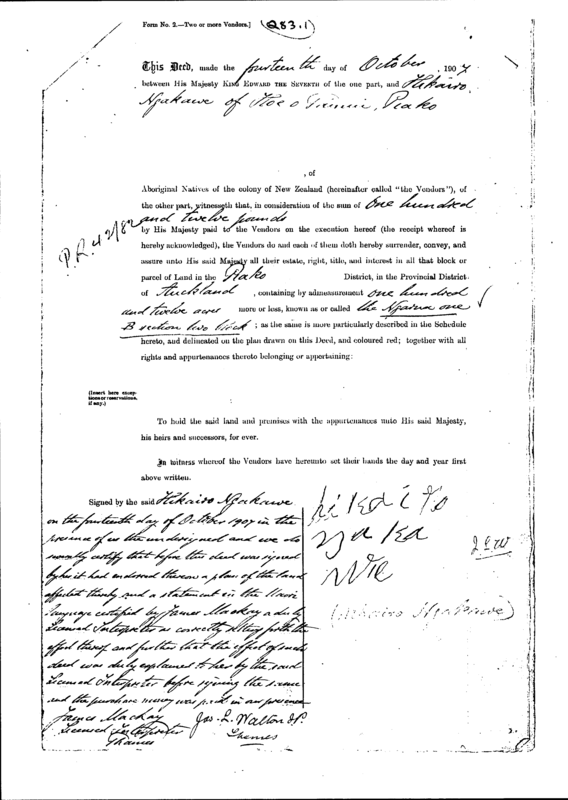 Form No. 2.—Two or more Vendors.] (283.1)
This Deed, made the fourteenth day of October, 1907
between His Majesty KING EDWARD THE SEVENTH of the one part, and Hikairo
Ngakawe of Piako
, of
Aboriginal Natives of the colony of New Zealand (hereinafter called "the Vendors"), of
the other part, witnesseth that, in consideration of the sum of One hundred
and twelve pounds
by His Majesty paid to the Vendors on the execution hereof (the receipt whereof is
hereby acknowledged), the Vendors do and each of them doth hereby surrender, convey, and
assure unto His said Majesty all their estate, right, title, and interest in all that block or
parcel of Land in the Piako District, in the Provincial District
of Auckland, containing by admeasurement one hundred
and twelve acres more or less, known as or called the one
B section two block; as the same is more particularly described in the Schedule
hereto, and delineated on the plan drawn on this Deed, and coloured red; together with all
rights and appurtenances thereto belonging or appertaining:
(Insert here excep-
tions or reservations,
if any.)
To hold the said land and premises with the appurtenances unto His said Majesty,
his heirs and successors, for ever.
In witness whereof the Vendors have hereunto set their hands the day and year first
above written.
Signed by the said Hikairo Ngakawe
on the fourteenth day of October 1907 in the
presence of us the undersigned and we do
severally certify that before this deed was signed
by her it had endorsed thereon a plan of the land
affected thereby and a statement in the Maori
language certified by James Mackay a duly
Licensed Interpreter as correctly setting forth the
effect thereof and further that the effect of such
deed was duly explained to her by the said
Licensed Interpreter before signing the same
and the purchase money was paid in our presence
James Mackay
Licensed Interpreter
Thames
Jas. L. Walton J.P.
Thames
hikairo
ngaka
wie
(Hikairo Ngakawe)